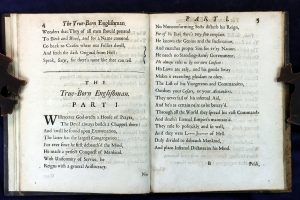 4 The True-Born Englishman.
Wonders that They of all men shou'd pretend
The Devil and
Go back to Causes where our Follies dwell,
And fetch the dark Original from Hell:
Speak, Satyr, for there's none like thee can tell.
THE
True-Born Englishman.
PART I
WHerever God erects a House of Prayer,
The Devil always builds a Chapel there:
And 'twill be found upon Examination,
The latter has the largest Congregation:
For ever since he first debauch'd the Mind,
He made a perfect Conquest of Mankind.
With Uniformity of Service, he
Reigns with a general Aristocracy.
PART I. 5
No Nonconforming Sects disturb his Reign,
For of his Yoak there's very few complain.
He knows the Genius and the Inclination,
And matches proper Sins for ev'ry Nation.
He needs no Standing-Army Government;
He always rules us by our own Consent:
His Laws are easy, and his gentle Sway
Makes it exceeding pleasant to obey.
The List of his Vicegerents and Commanders,
Outdoes your Cæsars, or your Alexanders.
They never fail of his Infernal Aid,
And he's as certain ne'er to be betray'd.
Through all the World they spread his vast Commands
And Death's Eternal Empire's maintain'd.
They rule so politickly and so well,
As if they were of Hell.
Duly divided to debauch Mankind,
And plant Infernal Dictates in his Mind.
B